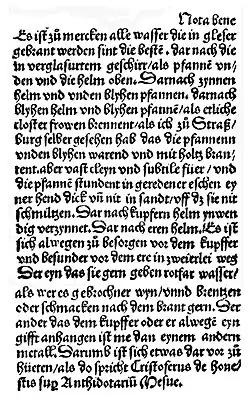 Nota bene
Es ist zů mercken alle wasser die in gleser
gebrant werden sint die bestē. dar nach die
in verglasurtem geschirr/als pfannē vn-
den vnd die helm oben. Darnach zynnen
helm vnd vnden blyhen pfannen. darnach
blyhen helm vnd blyhen pfannē/als etliche
closter frowen brennent/als ich zů Straß/
burg selber gesehen hab das die pfannenn
vnden blyhen warend vnd mit holtz bran-
tent.aber vast cleyn vnd subtile füer/vnd
die pfannē stundent in geredener eschen ey
ner hend dick vn̄ nit in sandt/vff dz sie nit
schmiltzen. Dar nach kupfern helm ynwen
dig verzynnet. Dar nach eren helm. Es ist
sich alwegen zů besorgen vor dem kupffer
vnd besunder vor dem ere in zweierlei weg
Der eyn das sie gern geben rotfar wasser/
als wer es gebrochner wyn/vnnd brentzen
oder schmacken nach dem brant gern. Der
ander das dem kupffer oder er alwegē eyn
gifft anhangen ist me dan eynem andern
metall. Darumb ist sich etwas dar vor zů
hüeten/als do spricht Cristoferus de hone/
stis sup Anthidotariū Mesue.